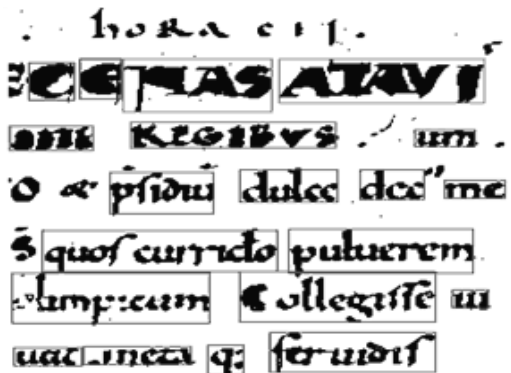 hORA CII.
ECENAS ATAVI
REGIBVS um
O & p̄sidiū dulce dec" me
S̄ quos curriclo puluerem
olimpicum Collegisse iu
uat meta q: feruidis